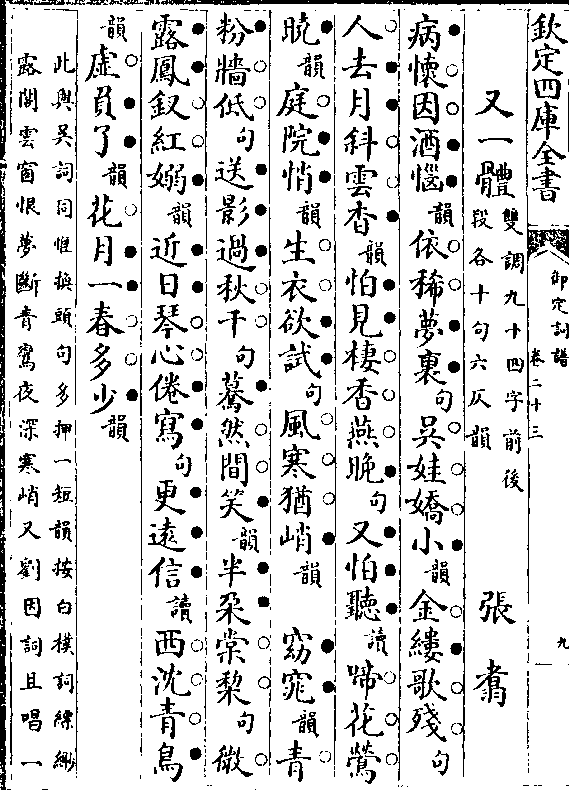 欽定四庫全書
御定詞譜
卷二十三
九
又一體
雙調九十四字前後
段各十句六仄韻
張翥
病懷因酒惱韻依稀夢裏句吳娃嬌小韻金縷歌殘句
人去月斜雲杳韻怕見棲香燕晚句又怕聽讀啼花鶯
曉韻庭院悄韻生衣欲試句風寒猶峭韻 窈窕韻青
粉牆低句送影過秋千句驀然間笑韻半朶棠棃句微
露鳳釵紅嫋韻近日琴心倦寫句更遠信讀西沈青鳥
韻虛負了韻花月一春多少韻
此與吳詞同惟換頭句多押一短韻按白樸詞縹緲
露閣雲窗恨夢斷青鸞夜深寒峭又劉因詞且唱一